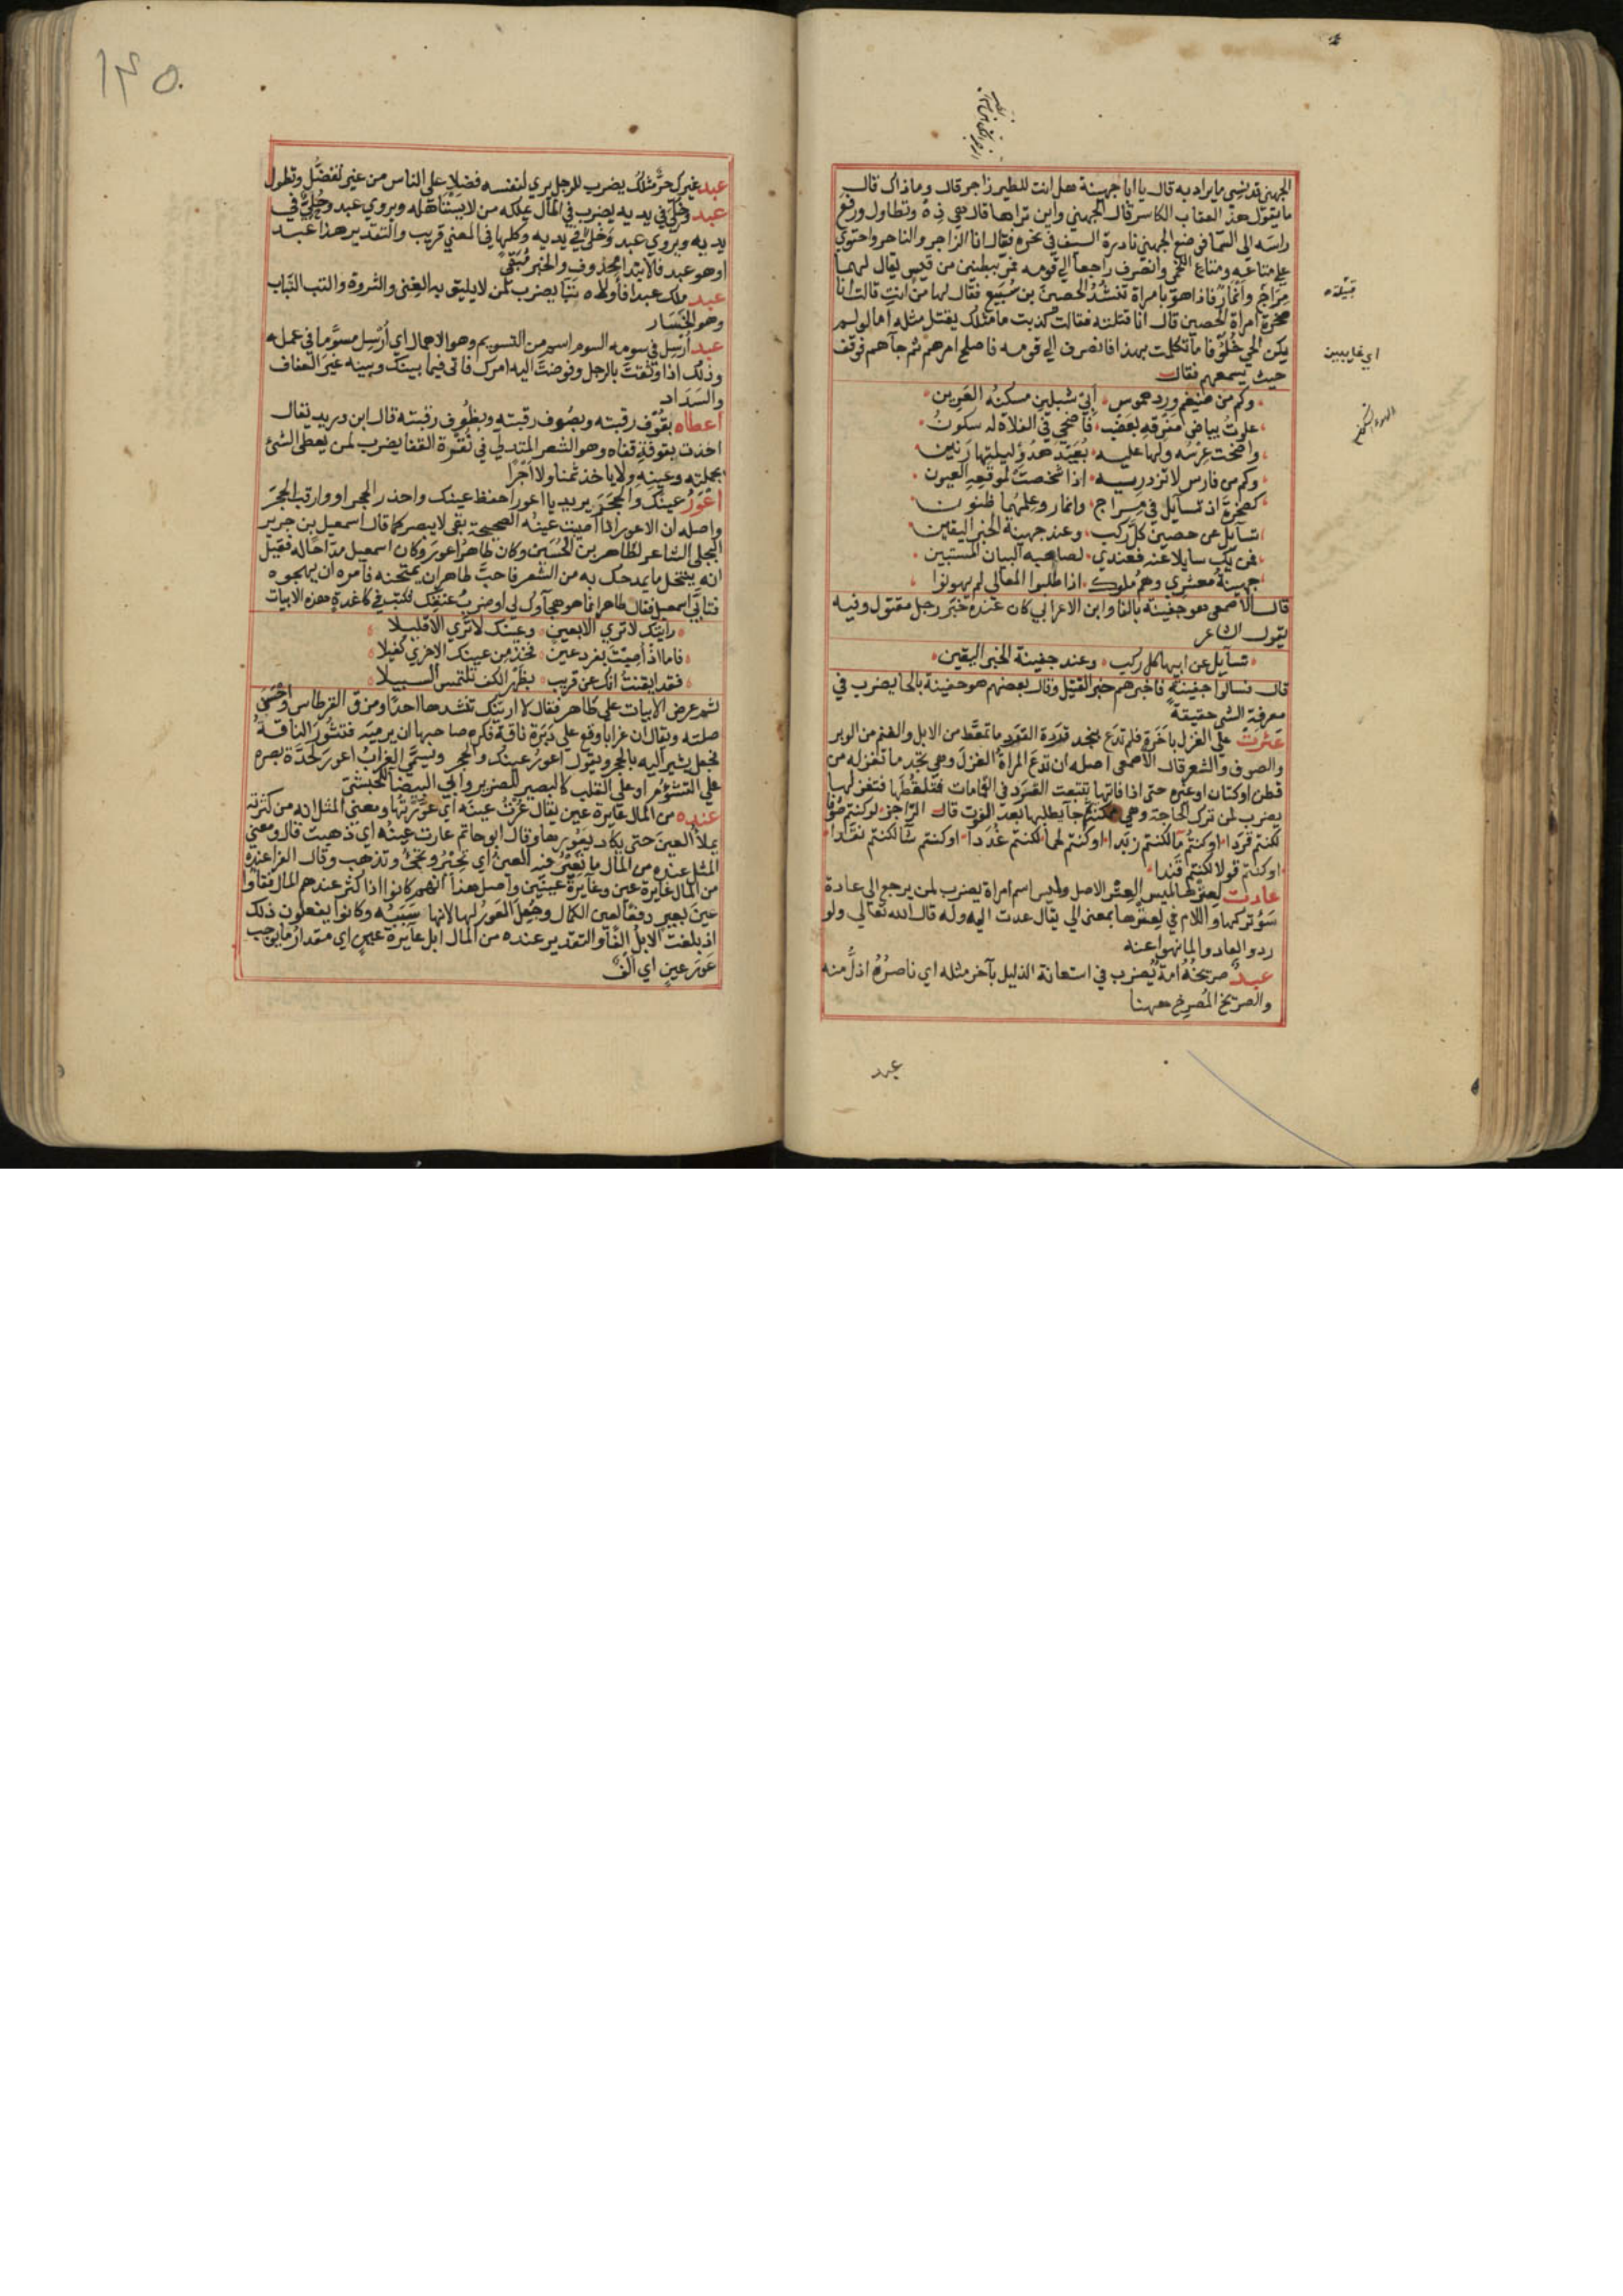 الجهني قد نسي ما يراد به قال يا اخا جهينة هل انت للطير زاجر قال وما ذاك قال
ما يقول هذا العقاب الكاسر قال الجهني واين تراها قال هي ذه وتطاول ورفع
راسه الى السما فوضع الجهني بادرة السيف في نحره فقال انا الزاجر والناحر واحتوى
على متاعه ومتاع اللخمي وانصرف راجعا الى قومه فمر ببطنين من قيس يقال لهما
مراح وانمار فاذا هو بامراة تنشد الحصين بن سبيع فقال لها من انت قالت انا
صخرة امراة الحصين قال انا قتلته فقالت كذبت ما مثلك يقتل مثله اما لو لم
يكن الحي خلوفا ما تكلمت بهذا فانصرف الى قومه فاصلح امرهم ثم جاهم فوقف
حيث يسمعهم فقال
وكم من ضيغم ورد هموس ابي شبلين مسكنه العرين
علوت بياض مفرقه بعضب فاضحى في الفلاة له سكون
واضحت عرسه ولها عليه بعيد هدو ليلتها رنين
وكم من فارس لا تزدريه اذا شخصت لموقعه العيون
كصخرة اذ تسايل في مراح وانمار وعلمهما ظنون
تسايل عن حصين كل ركب وعند جهينة الخبر اليقين
فمن يك سايلا عنه فعندي لصاحبه البيان المستبين
جهينة معشري وهم ملوك اذا طلبوا المعالي لم يهونوا
قال الاصمعي هو جفينة بالفا وابن الاعرابي كان عنده خبر رجل مقتول وفيه
يقول الشاعر
تسايل عن ابيها كل ركب وعند جفينة الخبر اليقين
قال فسالوا جفينة فاخبرهم خبر القتيل وقال بعضهم هو حفينة بالحا يضرب في
معرفة الشي حقيقة
عثرت على الغزل باخرة فلم تدع بنجد قردة القرد ما تمعط من الابل والغنم من الوبر
والصوف والشعر قال الاصمعي اصله ان تدع المراة الغزل وهي تجد ما تغزله من
قطن او كتان او غيره حتى اذا فاتها تتبعت القرد في القمامات فتلتقطها فتغزلها
يضرب لمن ترك الحاجة وهي ممكنة ثم جا يطلبها بعد الفوت قال الراجز لو كنتم صوفا
لكنتم قردا او كنتم ما لكنتم زبدا او كنتم لحما لكنتم غددا او كنتم شا لكنتم نقدا
او كنتم قولا لكنتم فندا
عادت لعترها لميس العتر الاصل ولميس اسم امراة يضرب لمن يرجع الى عادة
سو تركها واللام في لعترها بمعنى الى يقال عدت اليه وله قال الله تعالى ولو
ردوا لعادوا لما نهوا عنه
عبد صريخه امة يضرب في استعانة الذليل باخر مثله اي ناصره اذل منه
والصريخ المصرخ ههنا
عبد
قبيلة
اي غايبين
١٤٥
عبد غيرك حر مثلك يضرب للرجل يرى لنفسه فضلا على الناس من غير تفضل وتطول
عبد وخلي في يديه يضرب في المال يملكه من لا يستاهله ويروى عبد وحلي في
يديه ويروى عبد وخلا في يديه وكلها في المعنى قريب والتقدير هذا عبد
او هو عبد فالابتدا محذوف والخبر مبقى
عبد ملك عبدا فاولاه تبا يضرب لمن لا يليق به الغنى والثروة والتب التباب
وهو الخسار
عبد ارسل في سومه السوم اسم من التسويم وهو الاهمال اي ارسل مسوما في عمله
وذلك اذا وثقت بالرجل وفوضت اليه امرك فاتى فيما بينك وبينه غير العفاف
والسداد
اعطاه بقوف رقبته وبصوف رقبته وبظوف رقبته قال ابن دريد يقال
اخذت بقوفة قفاه وهو الشعر المتدلي في نقرة القفا يضرب لمن يعطى الشئ
بجملته وعينه ولا ياخذ ثمنا ولا اجرا
اعور عينك والحجر يريد يا اعور احفظ عينك واحذر الحجر او وارقب الحجر
واصله ان الاعور اذا اصيبت عينه الصحيحة بقي لا يبصر كما قال اسمعيل بن جرير
البجلي الشاعر لطاهر بن الحسين وكان طاهر اعور وكان اسمعيل مداحا له فقيل
انه ينتحل ما يمدحك به من الشعر فاحب طاهر ان يمتحنه فامره ان يهجوه
فتابى اسمعيل فقال طاهر انما هو هجاوك لي او ضرب عنقك فكتب في كاغدة هذه الابيات
رايتك لا ترى الا بعين وعينك لا ترى الا قليلا
فاما اذ اصبت بفرد عين فخذ من عينك الاخرى كفيلا
فقد ايقنت انك عن قريب بظهر الكف تلتمس السبيلا
ثم عرض الابيات على طاهر فقال لا ارينك تنشدها احدا ومزق القرطاس واحسن
صلته ويقال ان غرابا وقع على دبرة ناقة فكره صاحبها ان يرميه فتثور الناقة
فجعل يشير اليه بالحجر ويقول اعور عينك والحجر ويسمى الغراب اعور لحدة بصره
على التشؤم او على القلب كالبصير للضرير وابي البيضا للحبشي
عنده من المال عايرة عين يقال عرت عينه اي عورتها ومعنى المثل انه من كثرته
يملا العين حتى يكاد يعورها وقال ابو حاتم عارت عينه اي ذهبت قال ومعنى
المثل عنده من المال ما تعير فيه العين اي تجئ وتذهب وتحير وقال الفرا عنده
من المال عايرة عين وعايرة عينين واصل هذا انهم كانوا اذا كثر عندهم المال فقاوا
عين بعير دفعا لعين الكمال وجعل العور لها لانها سببه وكانوا يفعلون ذلك
اذ بلغت الابل الفا والتقدير عنده من المال ابل عايرة عين اي مقدار ما يوجب
عور عين اي الف